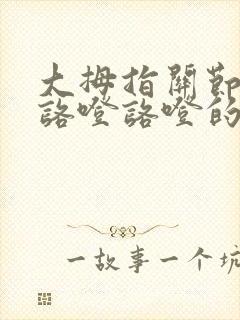 大拇指關節
詻噔詻噔的
一故事一个坑